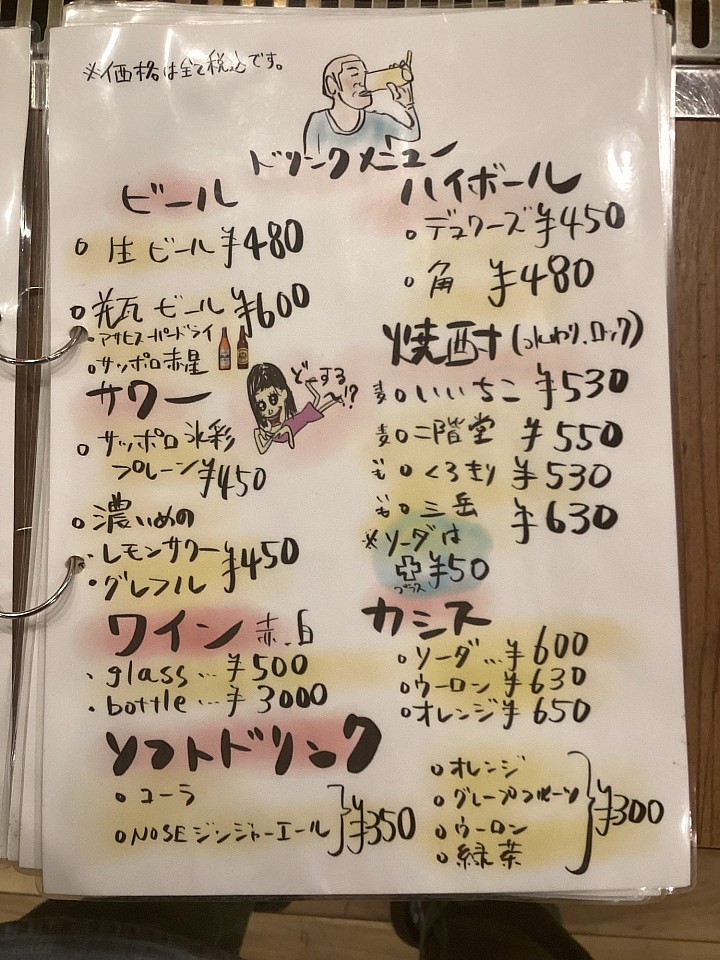 ※価格は全て税込です。
ドリンクメニュー
ビール
○ 生ビール ¥480
○ 瓶ビール ¥600
・アサヒスーパードライ
・サッポロ赤星
サワー
○ サッポロ氷彩
プレーン ¥450
○ 濃いめの
・レモンサワー
・グレフル
¥450
どーする
〜!?
ワイン 赤.白
・glass … ¥500
・bottle … ¥3000
ソフトドリンク
○ コーラ
○ NOSEジンジャーエール
¥350
ハイボール
○ デュワーズ ¥450
○ 角 ¥480
焼酎 (水わり.ロック)
麦○ いいちこ ¥530
麦○ 二階堂 ¥550
芋○ くろきり ¥530
芋○ 三岳 ¥630
※ソーダは
プラス ¥50
カシス
○ ソーダ … ¥600
○ ウーロン ¥630
○ オレンジ ¥650
○ オレンジ
○ グレープフルーツ
○ ウーロン
○ 緑茶
¥300